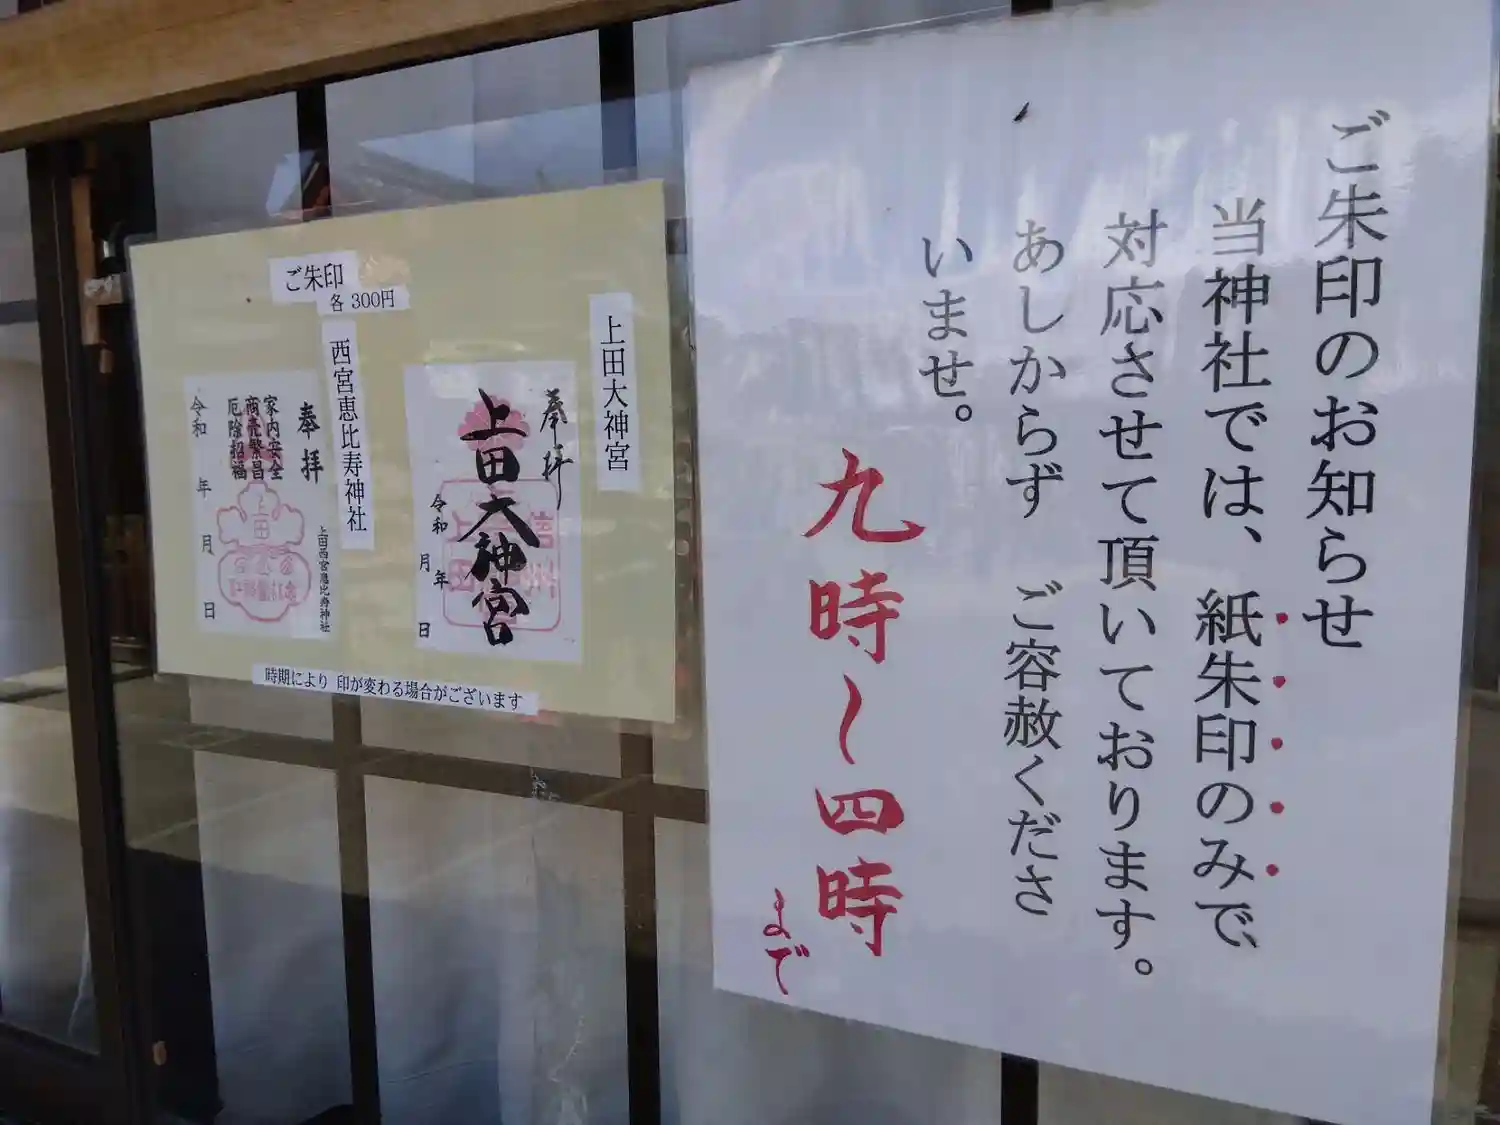 ご朱印のお知らせ
当神社では、紙朱印のみで、
対応させて頂いております。
あしからず ご容赦くださ
いませ。
九時～四時
まで
ご朱印
各 300円
上田大神宮
奉拝
上田大神宮
令和 年
月 日
西宮恵比寿神社
奉拝
家内安全
商売繁昌
厄除招福
令和 年 月 日
上田西宮恵比寿神社
上田
信州
上田
時期により 印が変わる場合がございます